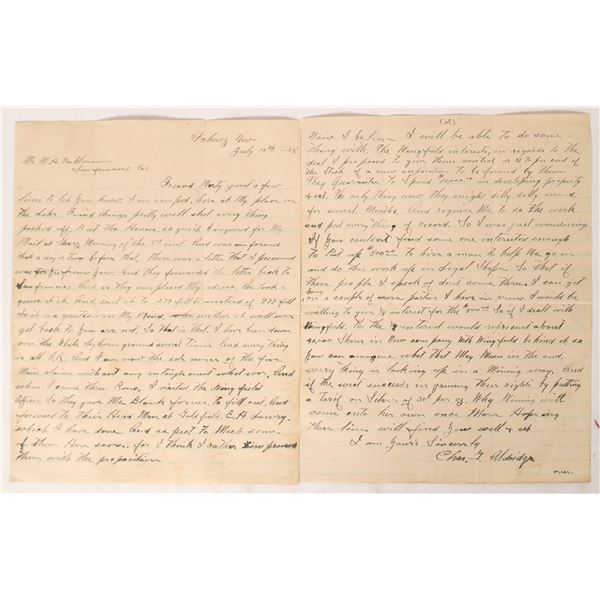 Schurz Nev
July 12th - 28
Mr. M.
San francisco Cal
Friend Morty just a few
lines to let You know. I am
here at My place on
the Lake. Found things pretty well shot every thing
packed off But the Houses, as quick I inquired for My
Mail at Morning of the 1st inst. And was informed
that a day or two before that, there was a letter that I presumed
was from You. And they forwarded the letter back to
San francisco. And as they mis placed My adress. She took a
guess at it. And sent it to 277 fell instead of 777 fell
So it is a question in My Mind. whether it will ever
get back to You are not. So that is that. I have been down
over the White Horn ground several times. And every thing
is all O.K. And I am now the sole owner of the five
Main claims without any entanglement what ever. And
when I came thru Reno, I visited the Wingfield
Office. So they gave Me Blank forms to fill out. And
forward to their Head Man at Goldfield. E.H.
which I have done. And expect to Meet some
of them Here soon. for I think I rather impressed
them with the proposition
(2)
Now I believe I will be able to do some-
thing with. The Wingfield interests, in regards to the
deal I proposed to give them control or 51 % per cent of
the Stock of a new corporation to be formed by them
They Guarantee to spend in developing property
ect. The only thing now they might dilly dally around
for several Months. And require Me to do the work
and put every thing of record. So I was just wondering
If You couldn't find some one interested enough
To Put up $500.00 to hire a man to help Me go on
and do this work up in Legal Shape. So that if
these people I speak of dont come thru. I can get
in a couple of more parties I have in view I would be
willing to give interest for the $500.00 So if I deal with
Wingfield. the interest would represent about
Shares in New company With Wingfield behind it so
You can imagine what that May Mean in the end.
every thing is looking up in a Mining way. And
if the west succeeds in gaining their rights by putting
a Tarif on Silver of 30¢ per oz. Why Mining will
come into her own once More Hoping
these lines will find You well ect
I am Yours Sincerely
Chas. F. Aldridge
over.